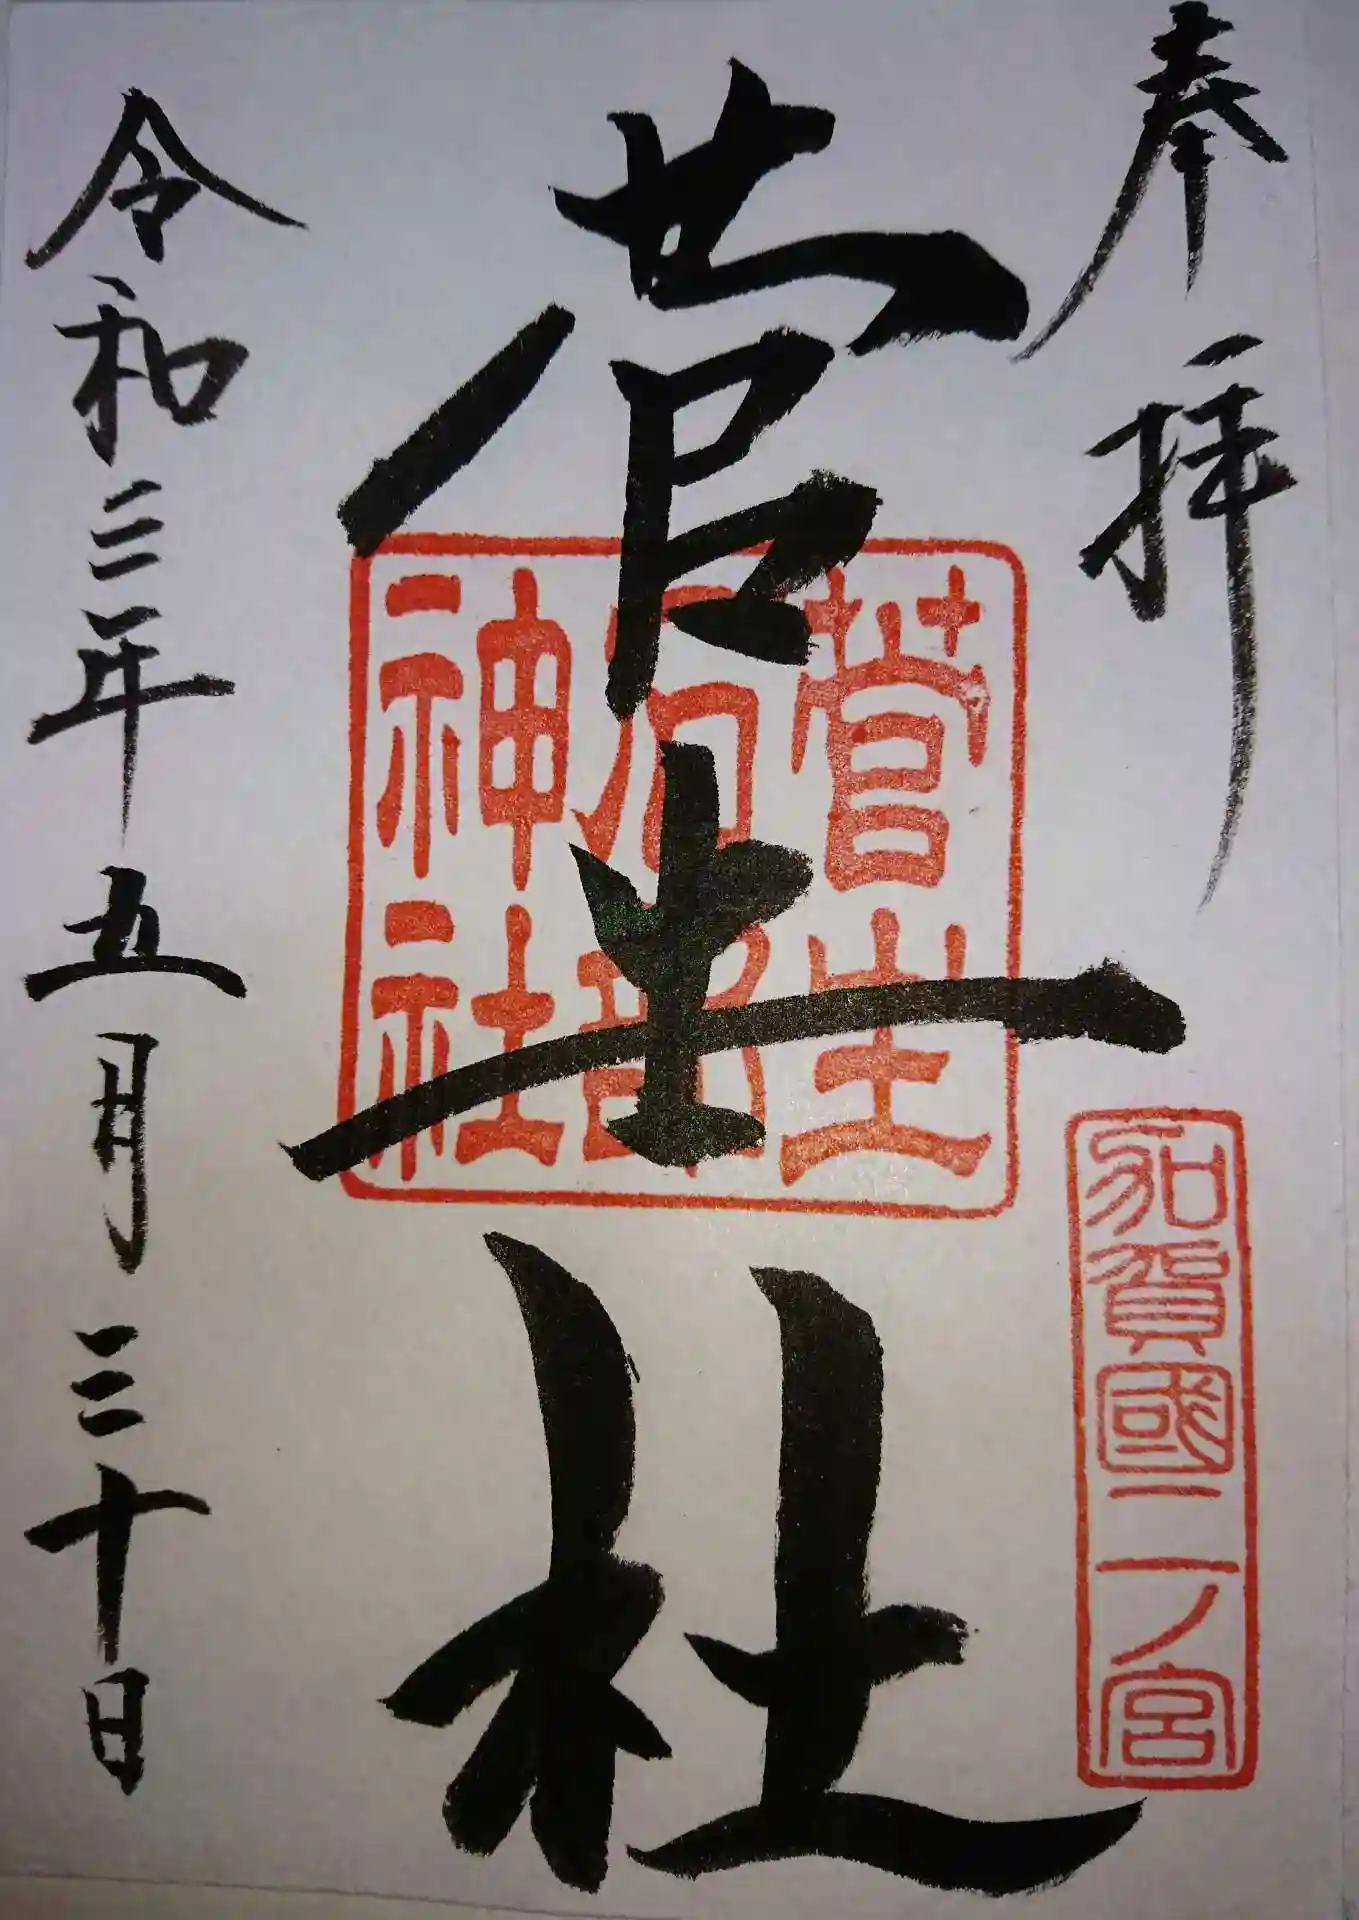 奉拝
加賀國二ノ宮
菅生社
菅生
石部
神社
令和三年五月三十日